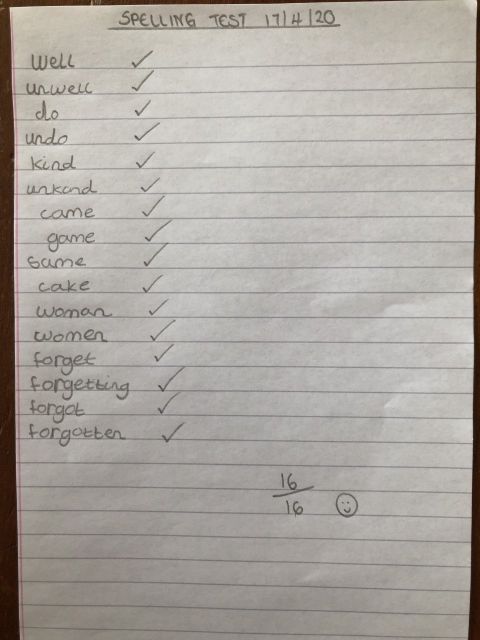 SPELLING TEST 17/4/20
well ✓
unwell ✓
do ✓
undo ✓
kind ✓
unkind ✓
came ✓
game ✓
same ✓
cake ✓
woman ✓
women ✓
forget ✓
forgetting ✓
forgot ✓
forgotten ✓
16
16